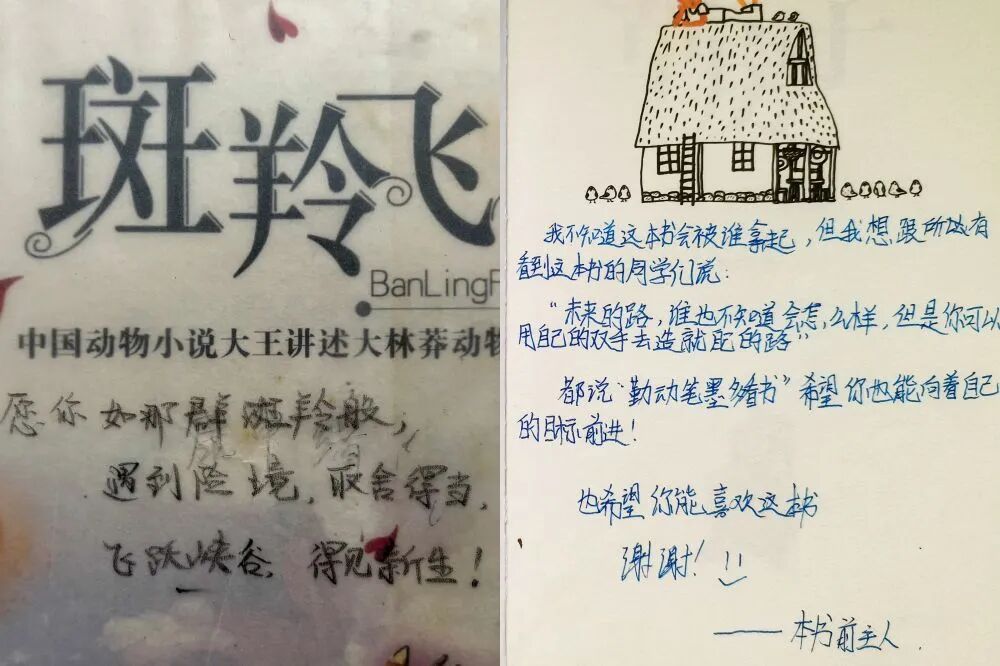 斑羚飞
BanLingF
中国动物小说大王讲述大林莽动物
愿你如那群斑羚般,
遇到险境,取舍得当,
飞跃峡谷,得见新生!
我不知道这本书会被谁拿起,但我想跟所有
看到这本书的同学们说:
“未来的路,谁也不知道会怎么样,但是你可以
用自己的双手去造就你的路”
都说“勤动笔墨多看书”希望你也能向着自己
的目标前进!
也希望你能喜欢这本书
谢谢!
——本书前主人